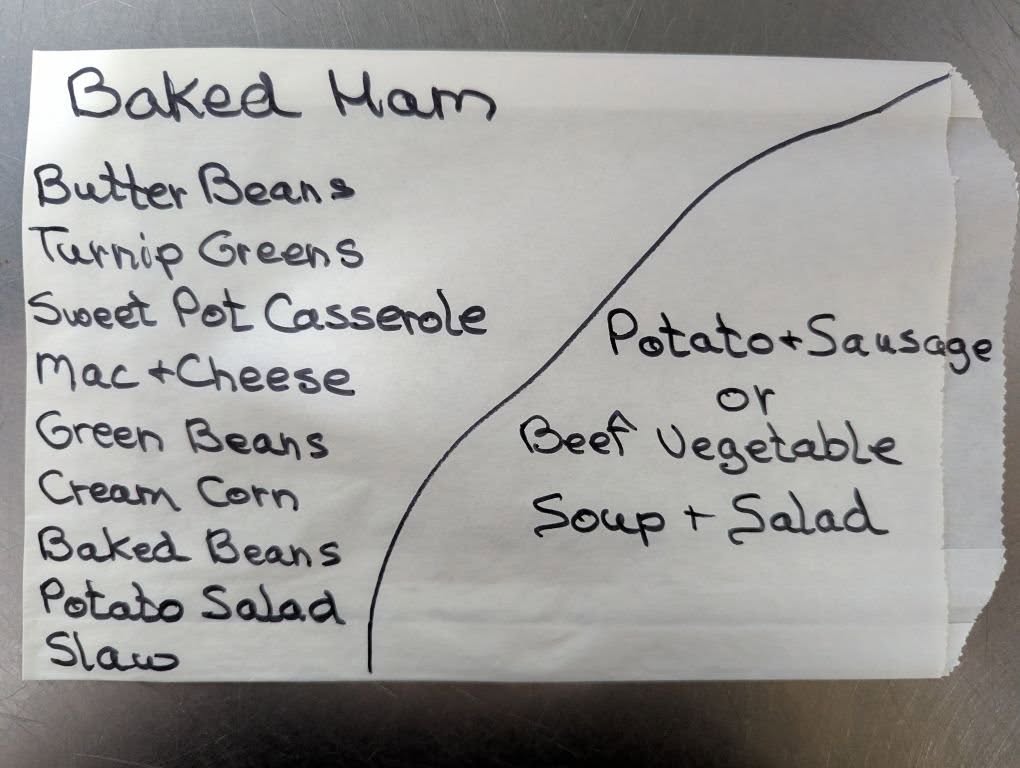 Baked Ham
Butter Beans
Turnip Greens
Sweet Pot Casserole
Mac + Cheese
Green Beans
Cream Corn
Baked Beans
Potato Salad
Slaw
Potato + Sausage
or
Beef Vegetable
Soup + Salad